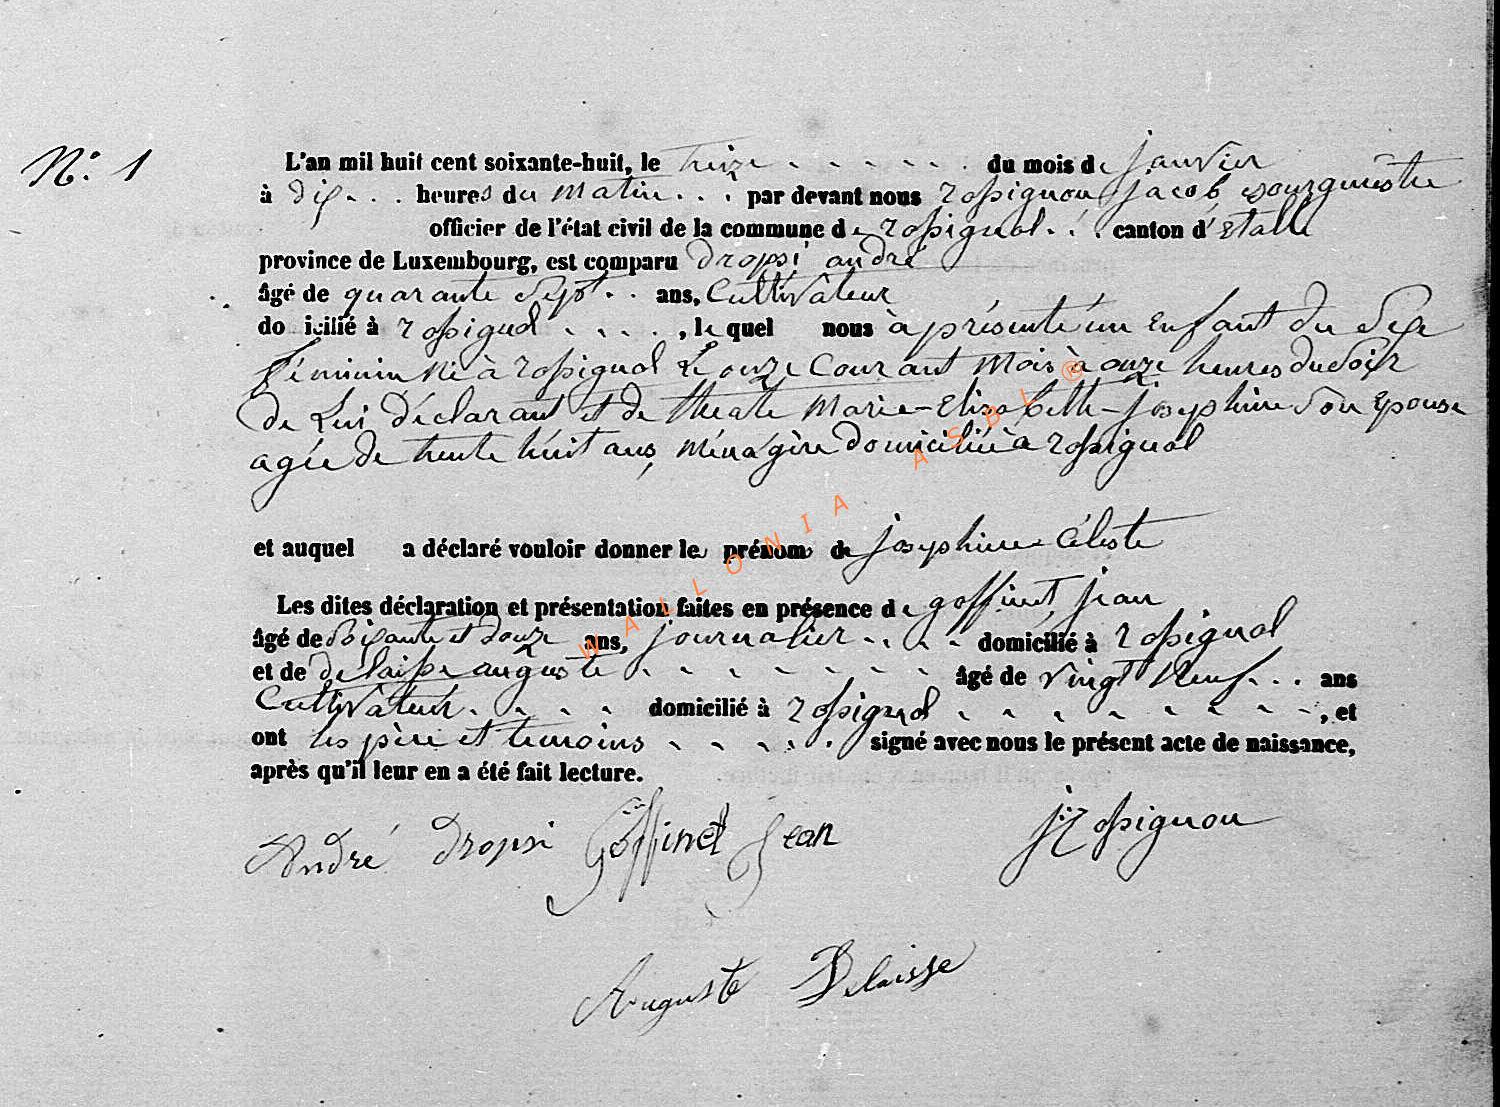 N° 1
L'an mil huit cent soixante-huit, le treize du mois de janvier
à dix heures du matin par devant nous rossignon jacob bourgmestre
officier de l'état civil de la commune de rossignol canton d'Etalle
province de Luxembourg, est comparu dropsi andré
âgé de quarante sept ans, Cultivâteur
do icilié à rossignol, lequel nous à présenté un Enfant du sexe
féminin né à rossignol Le onze Courant mois à onze heures du soir
de Lui déclarant et de theate Marie-Elizabette-josephine son Epouse
agée de trente huit ans, ménagère domiciliée à rossignol
et auquel a déclaré vouloir donner les prénoms de josephine Céleste
Les dites déclaration et présentation faites en présence de goffinet, jean
âgé de soixante et douze ans, journalier domicilié à rossignol
et de delaisse auguste âgé de vingt Neuf ans
Cultivâteur domicilié à rossignol, et
ont les père et temoins signé avec nous le présent acte de naissance,
après qu'il leur en a été fait lecture.
André Dropsi Goffinet Jean j rossignon
Auguste Delaisse
WALLONIA ASBL ®